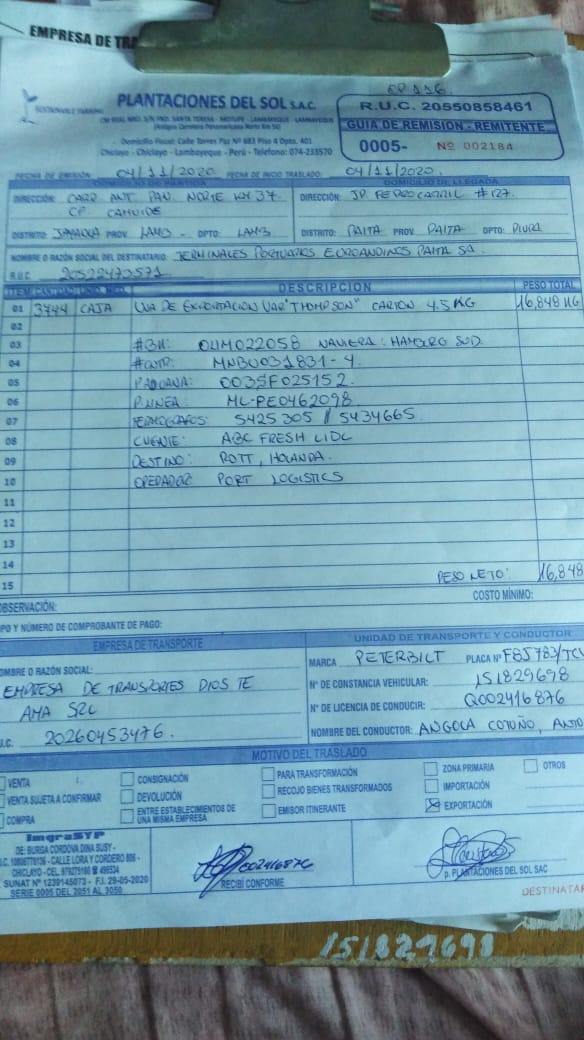 EMPRESA DE TRA
CP 116
SUSTAINABLE FARMING
PLANTACIONES DEL SOL S.A.C.
CM REAL NRO. S/N PRD. SANTA TERESA - MOTUPE - LAMBAYEQUE - LAMBAYEQUE
(Antigua Carretera Panamericana Norte Km 56)
- Domicilio Fiscal: Calle Torres Paz Nº 683 Piso 4 Dpto. A01
Chiclayo - Chiclayo - Lambayeque - Perú - Telefono: 074-233570
R.U.C. 20550858461
GUIA DE REMISION - REMITENTE
0005- Nº 002184
FECHA DE EMISIÓN: 04/11/2020 FECHA DE INICIO TRASLADO: 04/11/2020.
DOMICILIO DE PARTIDA DOMICILIO DE LLEGADA
DIRECCIÓN: CARR ANT. PAN. NORTE KM 37
CP CAHUIDE
DISTRITO: JAYANCA PROV LAMB - DPTO: LAMB
DIRECCIÓN: JP. FERROCARRIL #127.
DISTRITO: PAITA PROV PAITA DPTO: PIURA
NOMBRE O RAZÓN SOCIAL DEL DESTINATARIO: TERMINALES PORTUARIOS EUROANDINOS PAITA SA.
R.U.C. 20522473571
ITEM CANTIDAD UNID. MED. DESCRIPCION PESO TOTAL
01 3744 CAJA UVA DE EXPORTACION VAR "THOMPSON" CARTON 4.5 KG 16,848 KG
02
03 #BK: 0LIM022058 NAVIERA: HAMBURG SUD.
04 #CNTR: MNBU031831-4.
05 P.ADUANA: 003SF025152.
06 P.LINEA: ML-PE0462098
07 TERMOGRAFOS: 5425305 // 5434665.
08 CLIENTE: ABC FRESH LIDL
09 DESTINO: ROTT, HOLANDA.
10 OPERADOR: PORT LOGISTICS
11
12
13
14
15 PESO NETO: 16,848
OBSERVACIÓN: COSTO MÍNIMO:
PO Y NÚMERO DE COMPROBANTE DE PAGO:
EMPRESA DE TRANSPORTE
OMBRE O RAZÓN SOCIAL:
EMPRESA DE TRANSPORTES DIOS TE
AMA SRL
U.C. 20260453476.
UNIDAD DE TRANSPORTE Y CONDUCTOR
MARCA PETERBILT PLACA Nº F8J783/TCV
Nº DE CONSTANCIA VEHICULAR: 151829698
Nº DE LICENCIA DE CONDUCIR: Q002416876
NOMBRE DEL CONDUCTOR: ANGOLA COTOÑO,
MOTIVO DEL TRASLADO
VENTA
VENTA SUJETA A CONFIRMAR
COMPRA
CONSIGNACIÓN
DEVOLUCIÓN
ENTRE ESTABLECIMIENTOS DE
UNA MISMA EMPRESA
PARA TRANSFORMACIÓN
RECOJO BIENES TRANSFORMADOS
EMISOR ITINERANTE
ZONA PRIMARIA
IMPORTACIÓN
EXPORTACIÓN
OTROS
ImgraSYP
DE: BURGA CORDOVA DINA SUSY -
CALLE LORA Y CORDERO
CHICLAYO - CEL. 979275186
SUNAT Nº 1239145073 - F.I. 29-05-2020
SERIE 0005 DEL 2051 AL 3050
002416876
RECIBÍ CONFORME
p. PLANTACIONES DEL SOL SAC
DESTINATAR
151829698